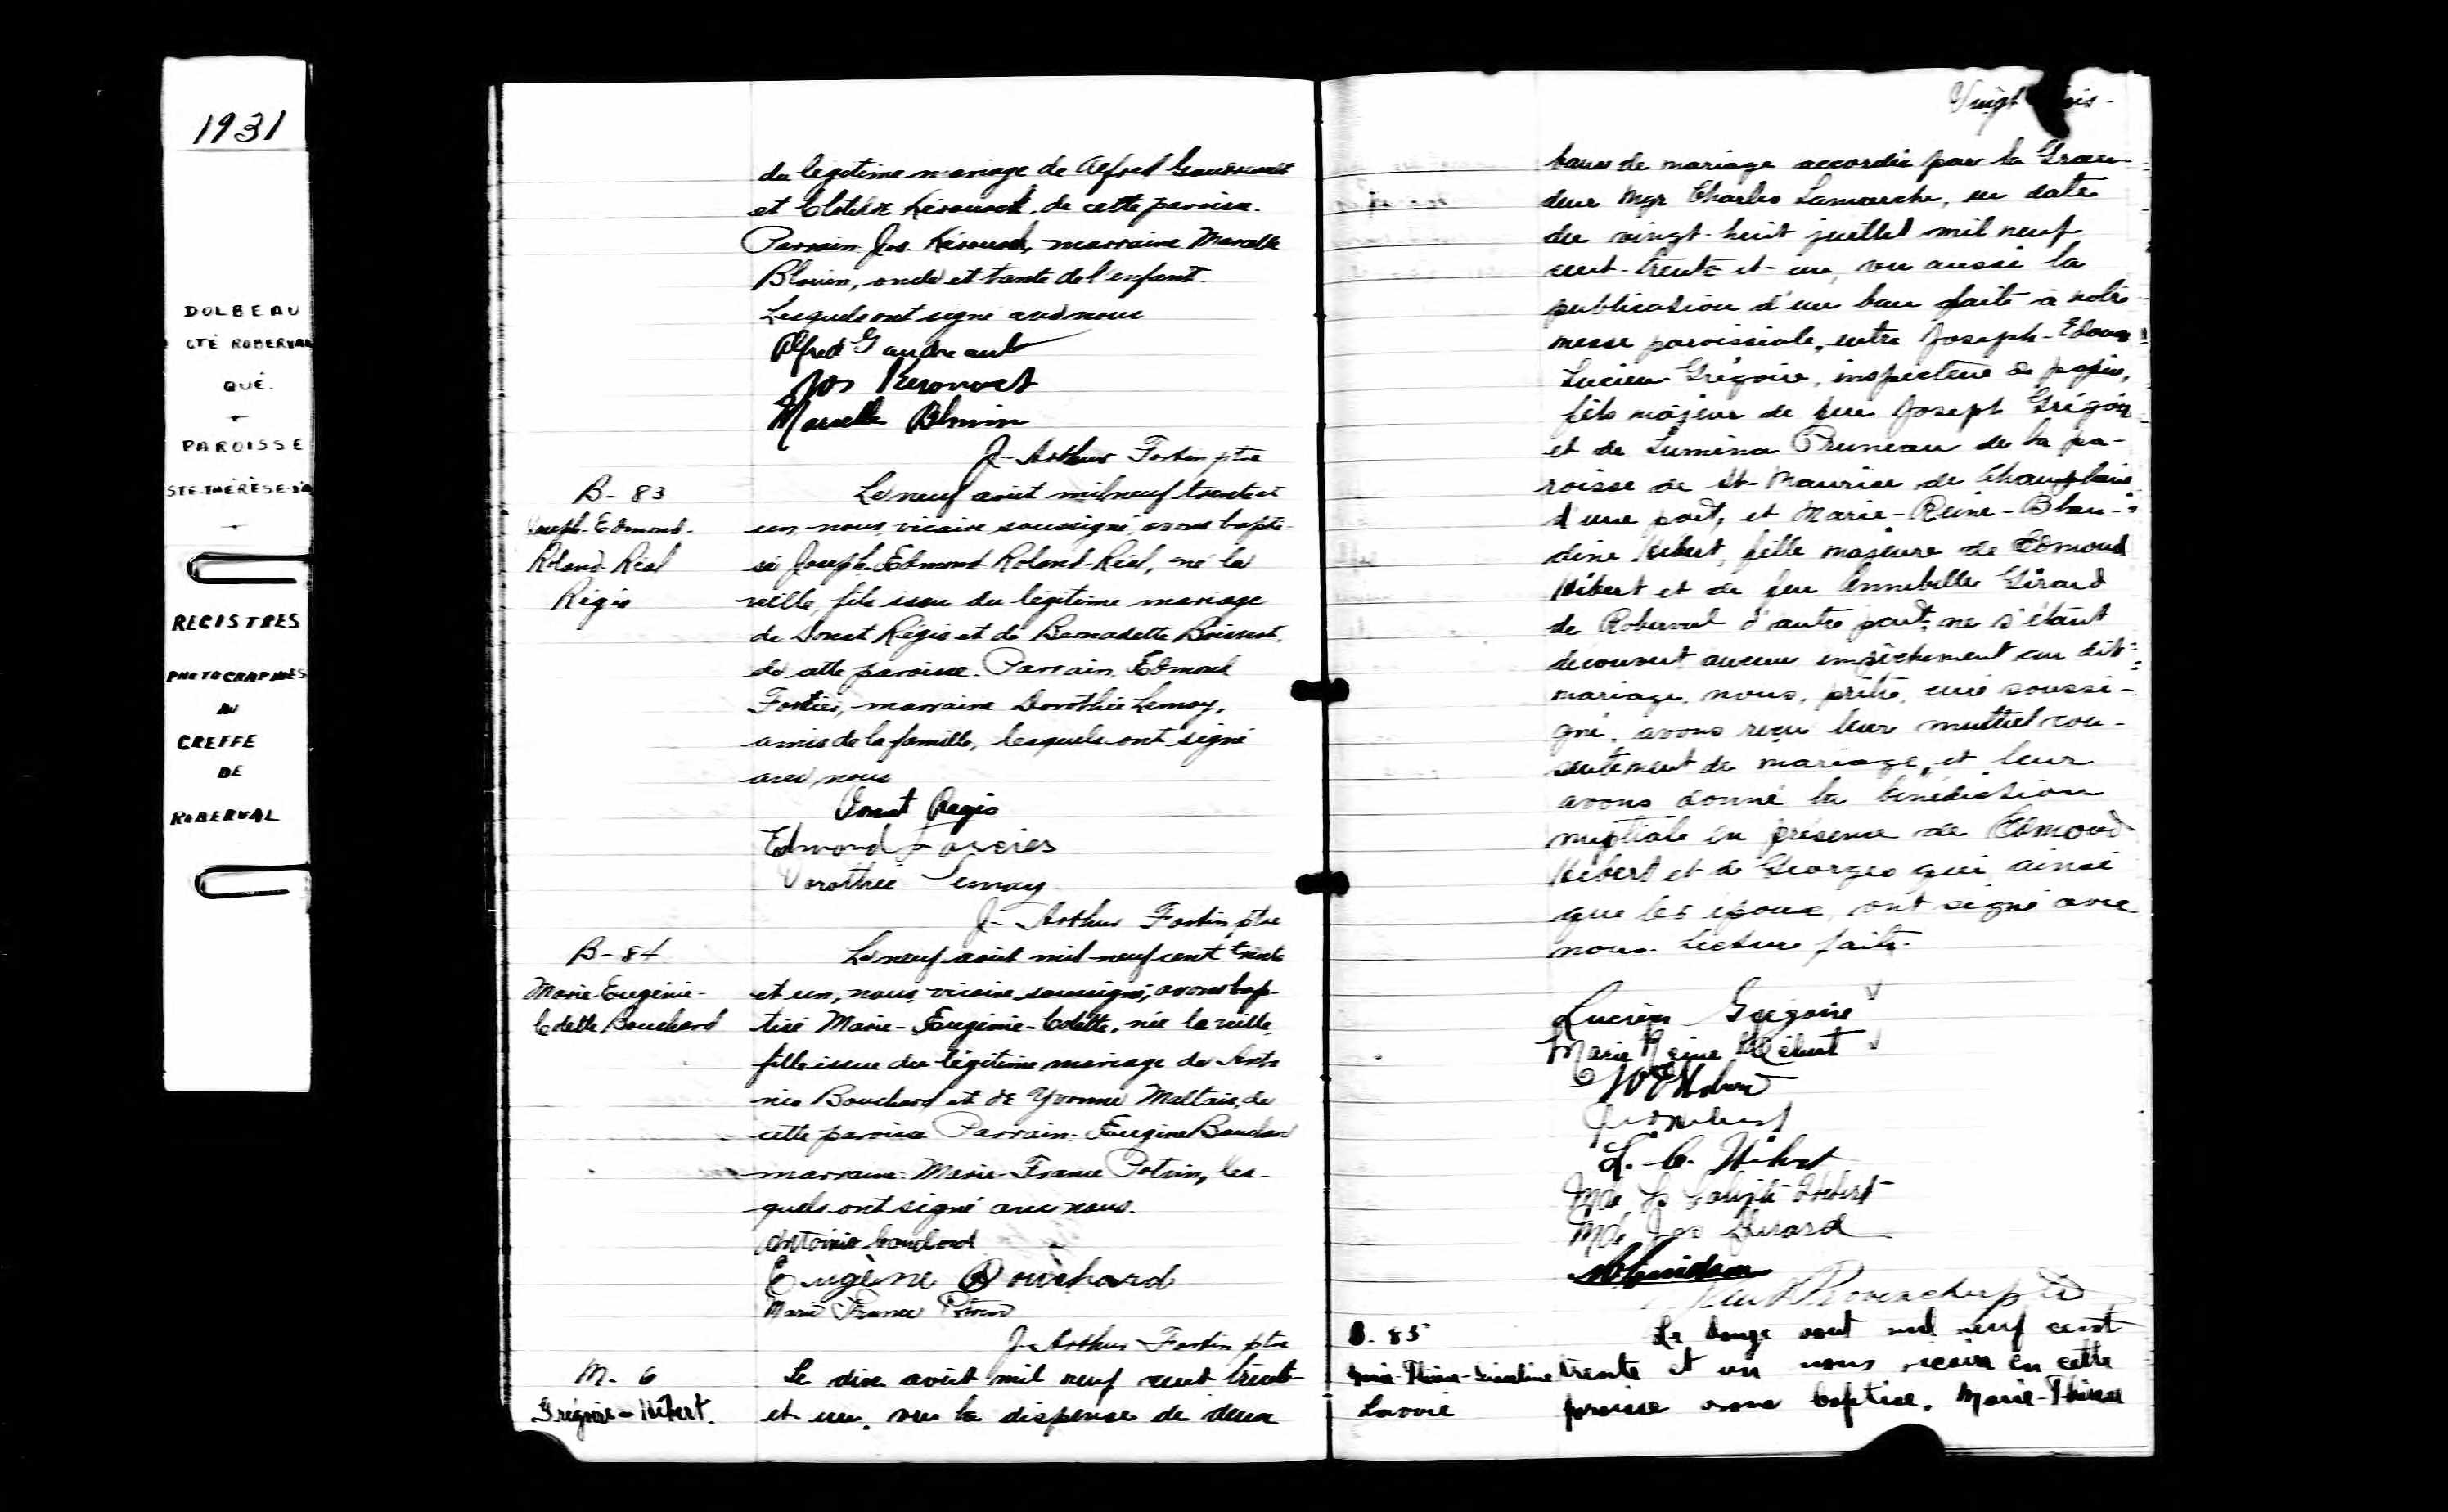 1931
DOLBEAU
CTÉ ROBERVAL
QUÉ.
PAROISSE
STE-THÉRÈSE-D'A
REGISTRES
PHOTOGRAPHIÉS
AU
GREFFE
DE
ROBERVAL
du légitime mariage de Alfred Gaudreault
et Clotilde Kérouack, de cette paroisse.
Parrain Jos. Kérouack, marraine Marcelle
Blouin, oncle et tante de l'enfant.
Lesquels ont signé avec nous
Alfred Gaudreault
Jos
Marcelle Blouin
J-Arthur Fortin ptre
B-83
Joseph-Edmond-
Roland-Réal
Régis
Le neuf août mil neuf trente et
un, nous, vicaire soussigné, avons bapti-
sé Joseph-Edmond Roland-Réal, né la
veille, fils issu du légitime mariage
de Donat Régis et de Bernadette
de cette paroisse. Parrain, Edmond
Fortier, marraine Dorothée Lemay,
amis de la famille, lesquels ont signé
avec nous
Donat Régis
Edmond
Dorothée Lemay
J-Arthur Fortin, ptre
B-84
Marie-Eugénie-
Colette Bouchard
Le neuf août mil-neuf cent trente
et un, nous, vicaire soussigné, avons bap-
tisé Marie-Eugénie-Colette, née la veille,
fille issue du légitime mariage de Anto
nio Bouchard et de Yvonne Maltais, de
cette paroisse Parrain: Eugène Bouchard
marraine: Marie-France Potvin, les-
quels ont signé avec nous.
Antonio Bouchard
Eugène Bouchard
Marie France Potvin
J-Arthur Fortin ptre
M. 6
Grégoire-Hébert.
Le dix août mil neuf cent trente
et un, vu la dispense de deux
Vingt trois-
bans de mariage accordée par Sa Gran-
deur Mgr Charles Lamarche, en date
du vingt-huit juillet mil neuf
cent-trente-et-un, vu aussi la
publication d'un ban faite à notre
messe paroissiale, entre Joseph-Edouard
Lucien Grégoire, inspecteur de papier,
fils majeur de feu Joseph Grégoire
et de Lumina Pruneau de la pa-
roisse de St-Maurice de Champlain
d'une part, et Marie-Reine-Blan-
dine Hébert, fille majeure de Edmond
Hébert et de feu Annabelle Girard
de Roberval d'autre part; ne s'étant
découvert aucun empêchement au dit
mariage, nous, prêtre, curé soussi-
gné, avons reçu leur mutuel con-
sentement de mariage, et leur
avons donné la bénédiction
nuptiale en présence de Edmond
Hébert et de Georges qui, ainsi
que les époux, ont signé avec
nous. Lecture faite.
Lucien Grégoire
Marie Reine Hébert
L. C. Hébert
Mde Hébert
Mde Jos Girard
B. 85
Lavoie
Le douze août mil neuf cent
trente et un nous vicaire en cette
paroisse avons baptisé, Marie-Thérèse